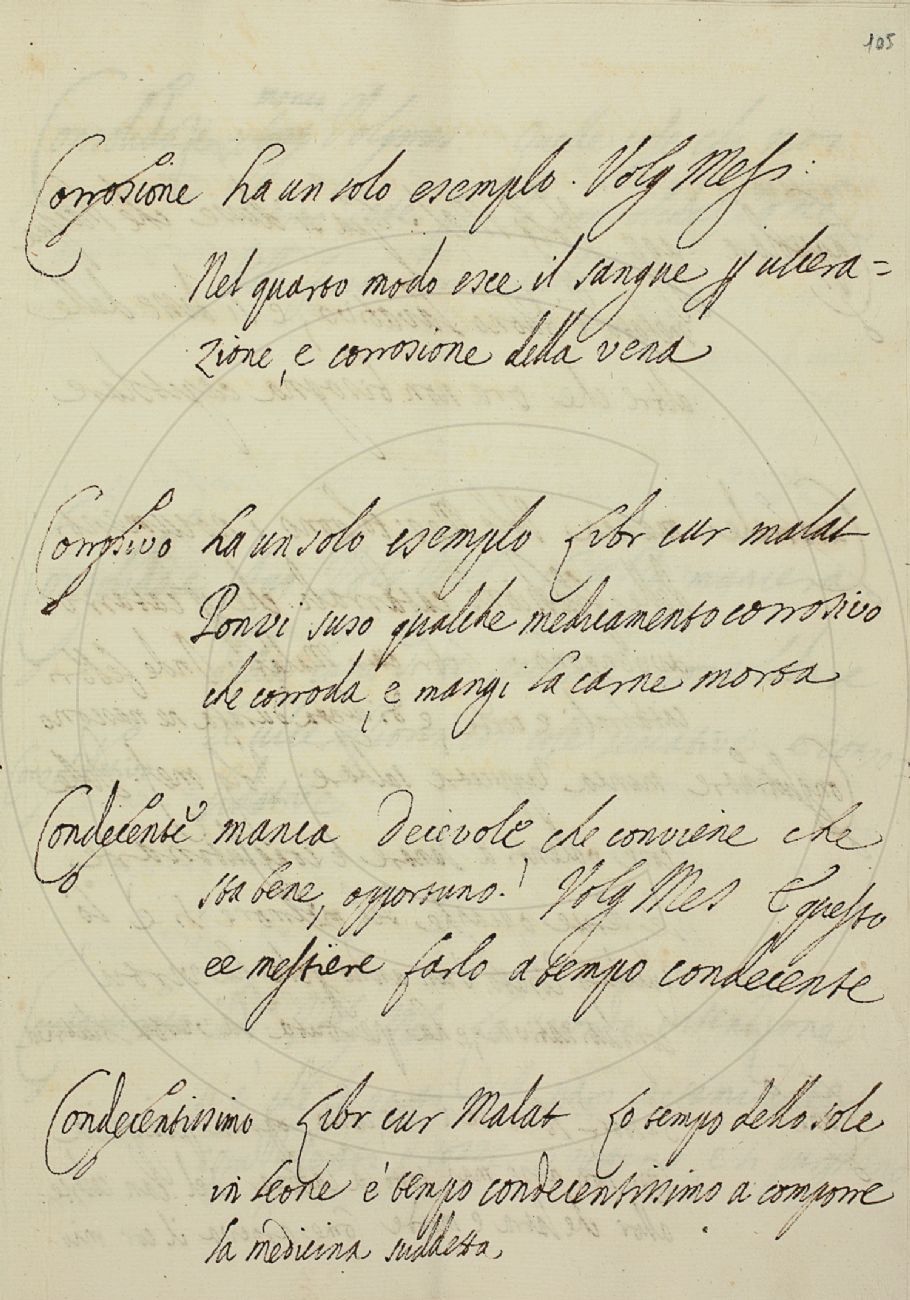 105
Corrosione ha un solo esemplo. Volg Mess:
Nel quarto modo esce il sangue p ulcera=
zione, e corrosione della vena
Corrosivo ha un solo esemplo Libr cur malat
Ponvi suso qualche medicamento corrosivo
che corroda, e mangi la carne morta
Condecente manca Decevole, che conviene che
sta bene, opportuno. Volg Mes E questo
ee mestiere farlo a tempo condecente
Condecentissimo Libr cur Malat Lo tempo dello sole
in leone è tempo condecentissimo a comporre
la medicina suddetta.